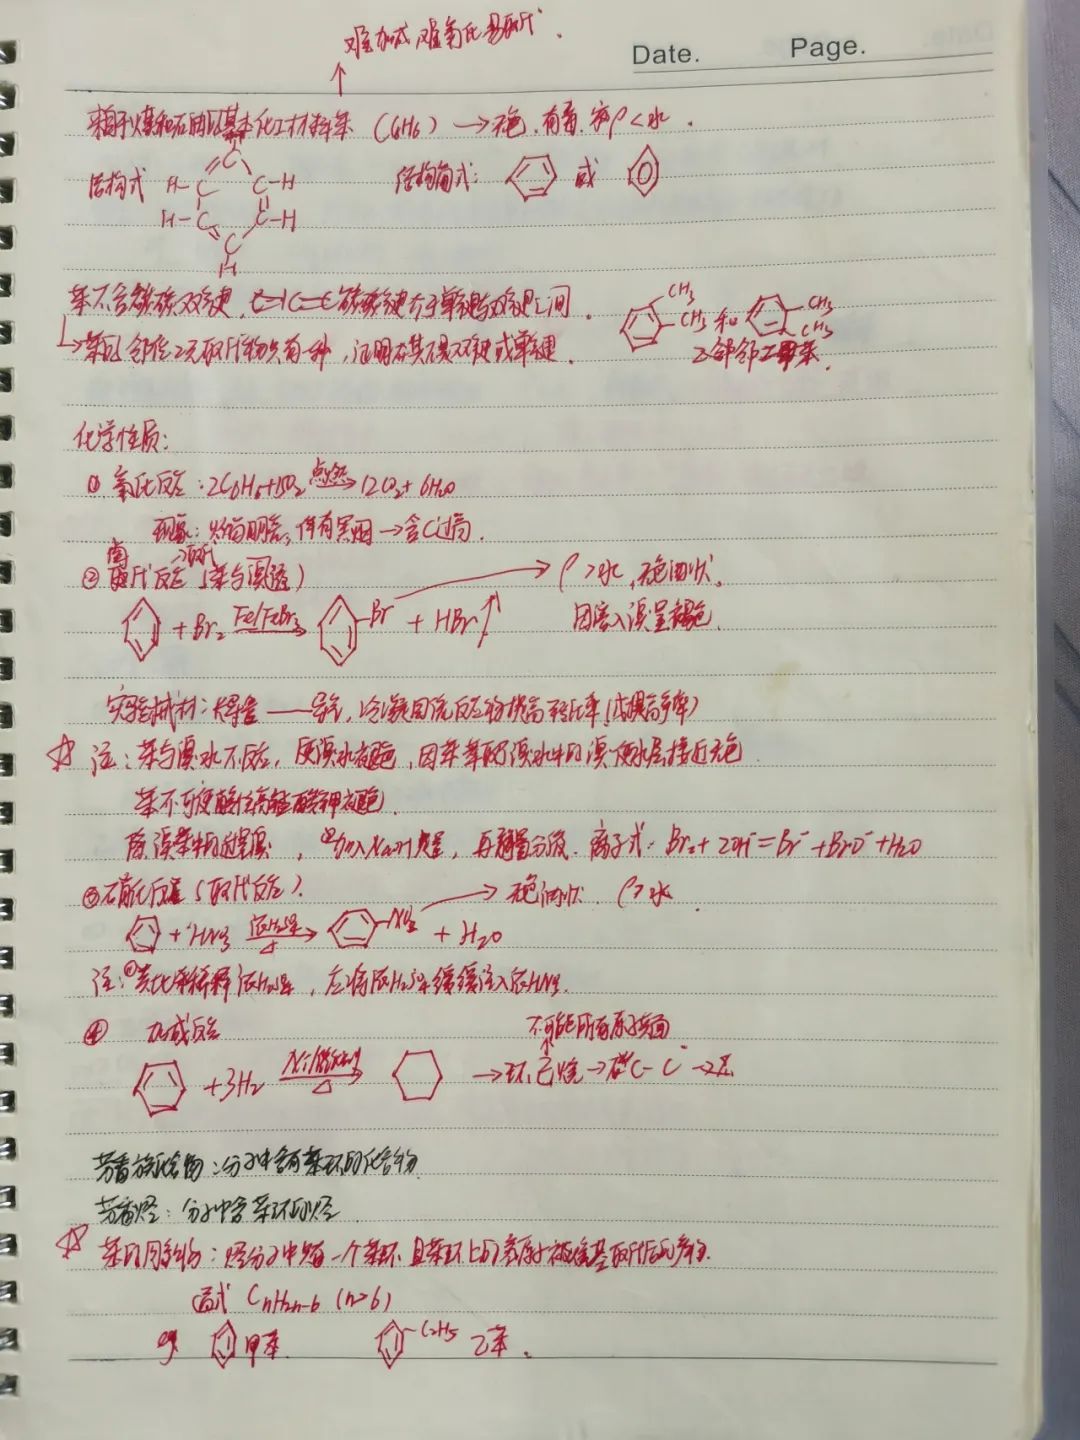 难加成 难氧化 易取代.
Date. Page.
来自于煤和石油的基本化工材料苯 (C6H6) → 无色.有毒. ρ<水.
结构式 H-C C C-H 结构简式: 或
H-C C-H
C
H
苯不含碳碳双键. 碳碳键介于单键与双键之间. CH3 CH3 和 CH3 CH3
↳苯的邻位二元取代物只有一种,证明 双键或单键.
化学性质:
① 氧化反应: 2C6H6+15O2 点燃→ 12CO2+6H2O
现象: 火焰明亮,伴有黑烟→含C过高.
② 取代反应 (苯与溴 ) → ρ>水,无色油状.
+Br2 Fe/FeBr3→ -Br + HBr↑ 因溶入溴呈褐色.
实验 : 长导管——导气,冷凝回流反应物提高转化率
☆ 注: 苯与溴水不反应,使溴水褪色,因苯萃取溴水中的溴使水层接近无色
苯不可使酸性高锰酸钾褪色.
除溴苯中的 溴, 加入NaOH ,再静置分液. 离子式: Br2+2OH-=Br-+BrO-+H2O
③硝化反应 (取代反应). → 无色油状. ρ>水.
+HNO3 浓H2SO4 △→ -NO2 + H2O
注:① 浓H2SO4, 将浓H2SO4缓缓注入浓HNO3.
④ 加成反应 不可能所有原子共面
+3H2 Ni/催化剂 △→ → 环己烷→
芳香族化合物:分子中含有苯环的化合物.
芳香烃:分子中含苯环的烃
☆ 苯的同系物: 分子中只有一个苯环 且苯环上的氢原子被烷基取代后的产物.
通式 CnH2n-6 (n>6)
eg. 甲苯. -C2H5 乙苯.